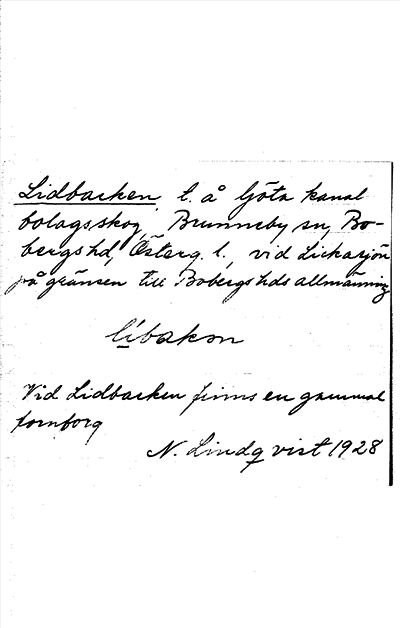 Lidbacken, t. å Göta kanal
bolagsskog, Brunneby sn, Bo-
bergs hd, Österg. l., vid Lickasjön
på gränsen till Bobergs hds allmänning
libakən
Vid Lidbacken finns en gammal
fornborg
N. Lindqvist 1928